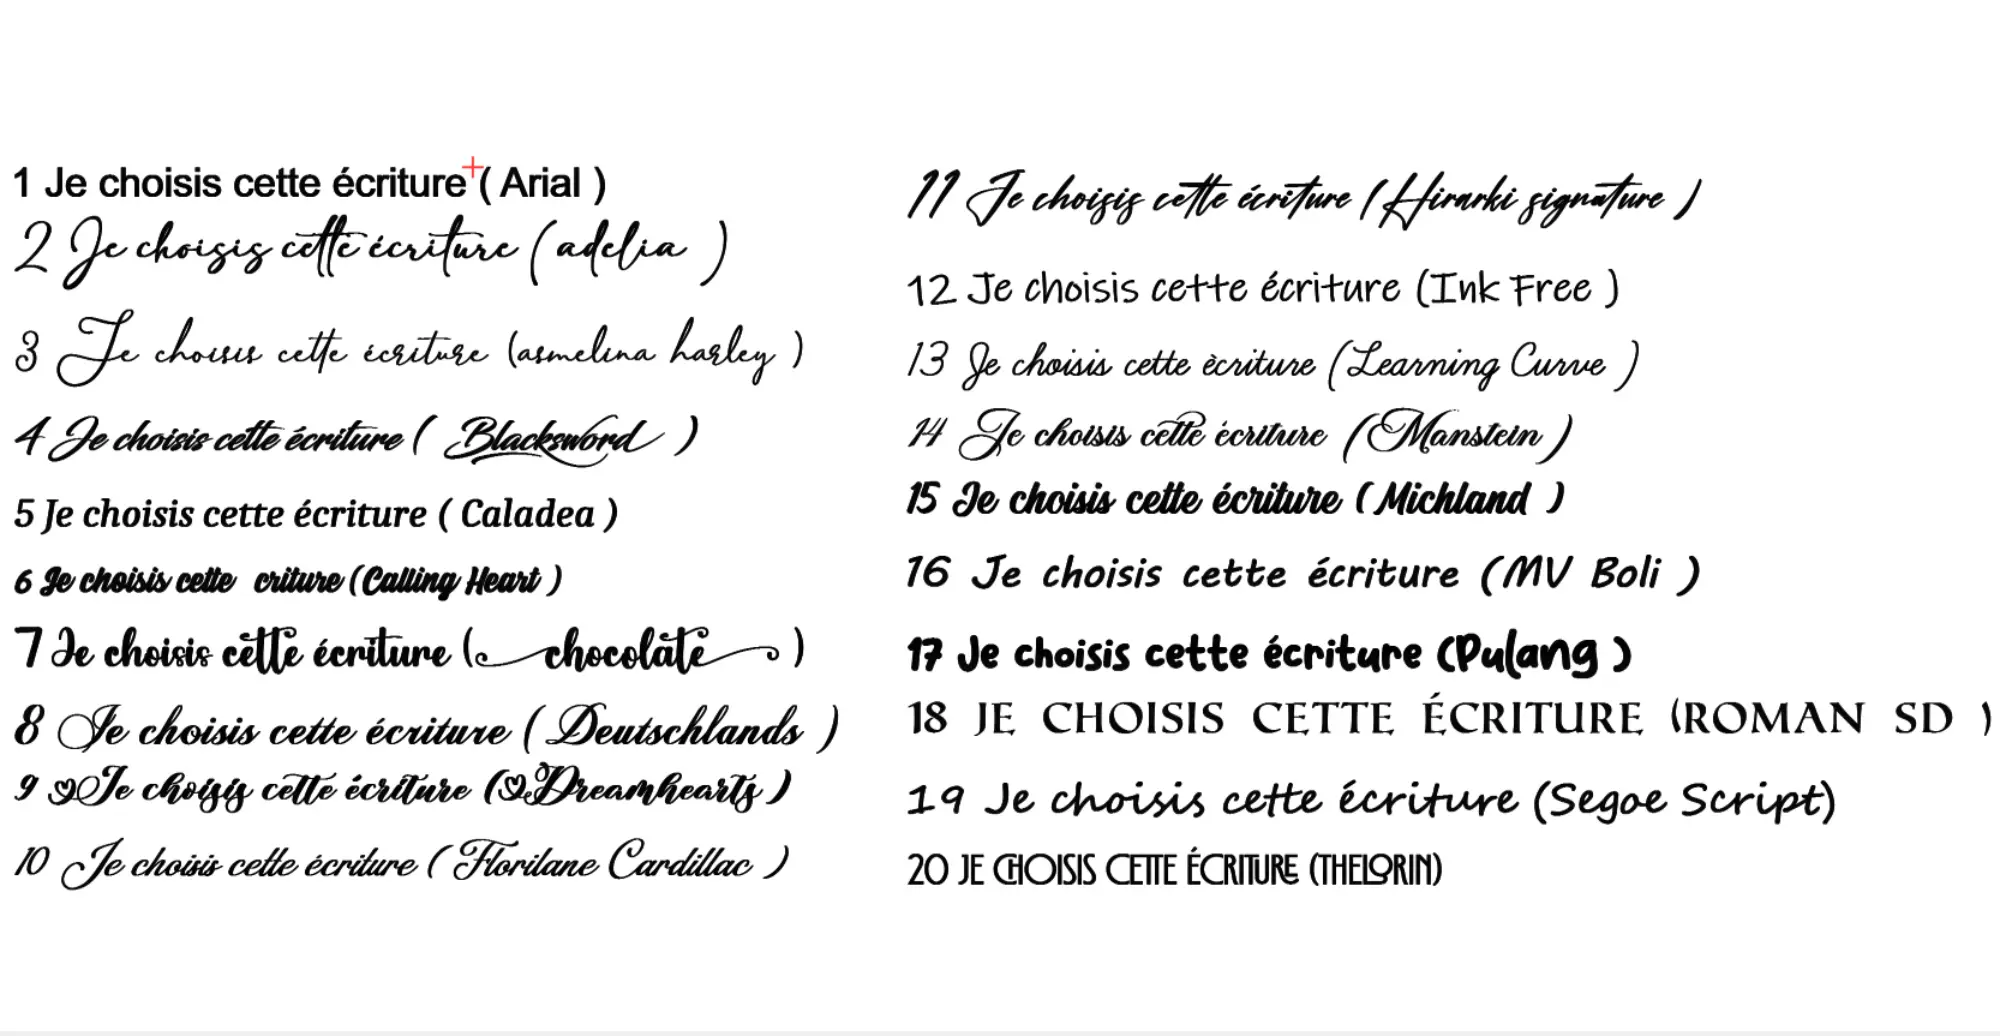 1 Je choisis cette écriture ( Arial )
2 Je choisis cette écriture ( adelia )
3 Je choisis cette écriture (asmelina harley )
4 Je choisis cette écriture ( Blacksword )
5 Je choisis cette écriture ( Caladea )
6 Je choisis cette criture (Calling Heart )
7 Je choisis cette écriture ( chocolate )
8 Je choisis cette écriture ( Deutschlands )
9 Je choisis cette écriture ( Dreamhearts )
10 Je choisis cette écriture ( Florilane Cardillac )
11 Je choisis cette écriture ( Hirarki signature )
12 Je choisis cette écriture (Ink Free )
13 Je choisis cette ècriture (Learning Curve )
14 Je choisis cette écriture (Manstein )
15 Je choisis cette écriture ( Michland )
16 Je choisis cette écriture (MV Boli )
17 Je choisis cette écriture (Pulang )
18 JE CHOISIS CETTE ÉCRITURE (ROMAN SD )
19 Je choisis cette écriture (Segoe Script)
20 JE CHOISIS CETTE ÉCRITURE (THELORIN)